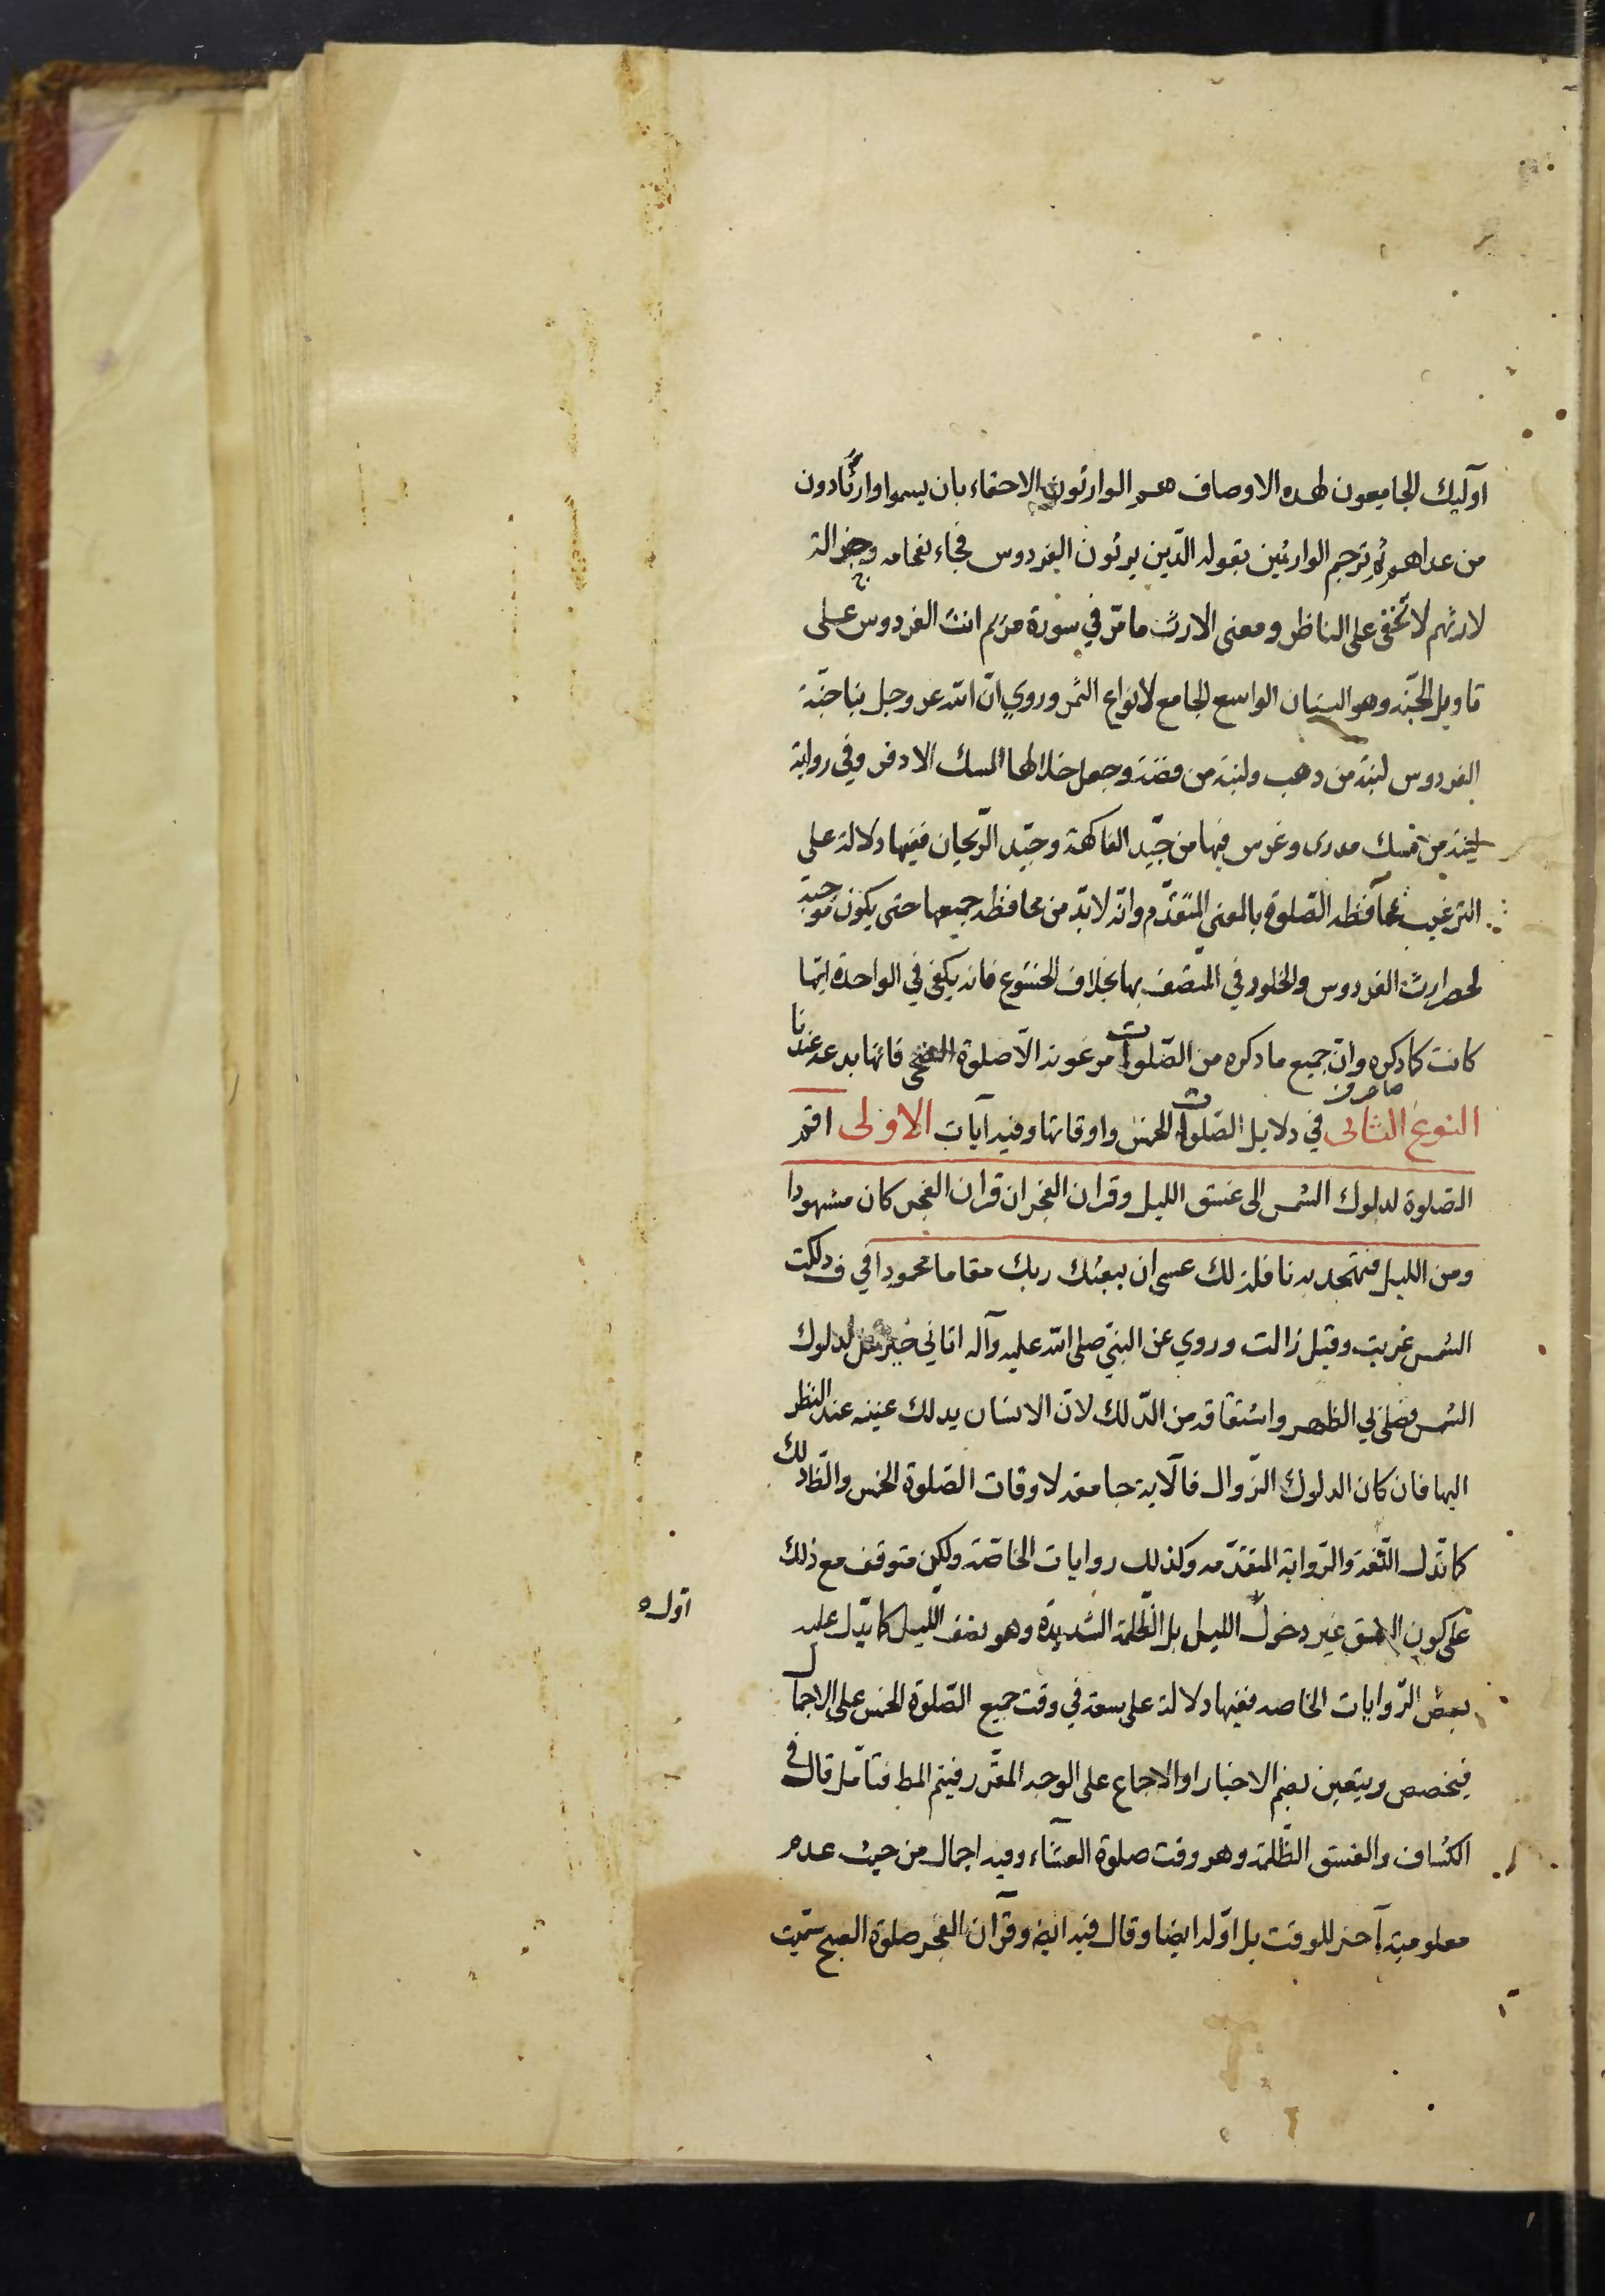 اولیك الجامعون لهذه الاوصاف هم الوارثون الاحقاء بان یسموا وارثا دون
من عداهم ثم ترجم الوارثین بقوله الّذین یرثون الفردوس فجاء بفخامه وجزالة
لارثهم لا تخفى على الناظر ومعنى الارث ما مرّ في سورة مریم انث الفردوس على
تاویل الجنّة وهو البستان الواسع الجامع لانواع الثمر وروي انّ الله عز وجل بنا جنّة
الفردوس لبنة من ذهب ولبنة من فضة وجعل خلالها المسك الاذفر وفي روایة
لبنة من مسك مدرى وغرس فیها من جیّد الفاكهة وجیّد الرّیحان ففیها دلالة على
الترغیب بمحافظه الصّلوة بالمعنى المتقدّم وانّه لا بدّ من محافظه جمیعها حتى یكون موجبة
لحصر ارث الفردوس والخلود في المتّصف بها بخلاف الخشوع فانه یكفي في الواحدة ایّها
كانت كما ذكره وانّ جمیع ما ذكره من الصّلوات مرغوبة الّا صلوة الضحى فانّها بدعة عندنا
النوع الثانى في دلایل الصّلوات الخمس واوقاتها وفیه آیات الاولى اقم
الصّلوة لدلوك الشمس الى غسق اللیل وقران الفجر ان قران الفجر كان مشهودا
ومن اللیل فتهجد به نافلة لك عسى ان یبعثك ربك مقاما محمودا في ف دلكت
الشمس غربت وقیل زالت وروي عن النبيّ صلى الله علیه وآله اتاني جبرئیل لدلوك
الشمس فصلى بي الظهر واشتقاقه من الدّلك لانّ الانسان یدلك عینیه عند النظر
الیها فان كان الدلوك الزّوال فالآیة جامعة لاوقات الصّلوة الخمس والظّ ذلك
كما تدل اللّغة والرّوایة المتقدّمه وكذلك روایات الخاصّة ولكن متوقف مع ذلك
على كون الغسق غیر دخول اللیل بل الظّلمة الشدیدة وهو نصف اللّیل كما یدل علیه
اوّل ه
بعض الرّوایات الخاصه ففیها دلالة على سعة في وقت جمیع الصّلوة الخمس على الاجمال
فیخصص ویتعین بضم الاخبار او الاجماع على الوجه المقرّر فیتم المط فتأمل قال في
الكشاف والغسق الظّلمة وهو وقت صلوة العشاء وفیه اجمال من حیث عدم
معلومیة آخر للوقت بل اوّله ایضا وقال فیه ایضا وقرآن الفجر صلوة الصبح سمّیت